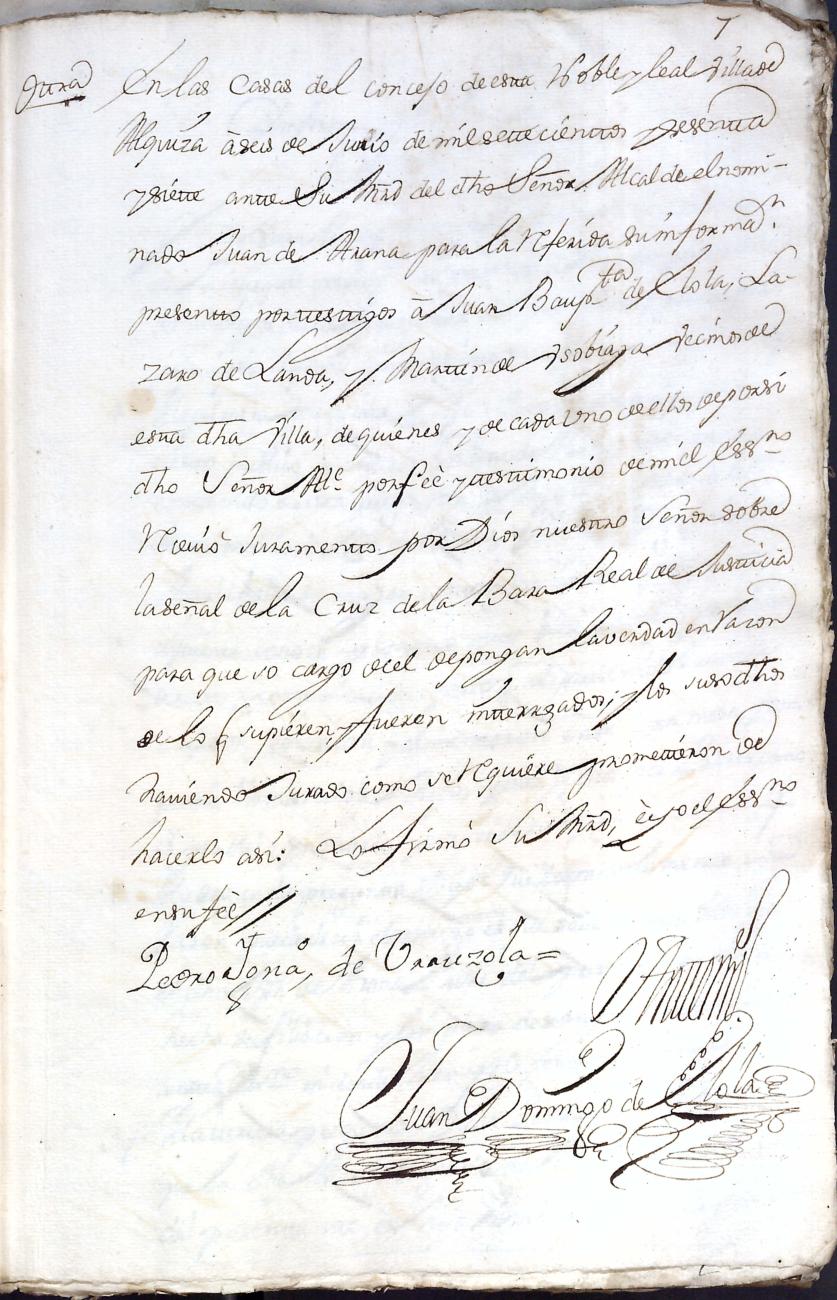 7
Jurad
En las Casas del concejo de esta Noble y leal Villa de
Alquiza à seis de Junio de mil sette cientos y sesentta
y siette antte Su Mrd del dho Señor Alcalde el nomi-
nado Juan de Arana para la referida su informaⁿ
presentto por testtigos à Juan Baupᵗᵃ de Olola, La-
zaro de Landa, y Marttin de Ysobiaga Vecinos de
estta dha Villa, de quienes y de cada Uno de ellos de por si
dho Señor Alᵉ por feè y testtimonio de mi el Essⁿᵒ
recivió Juramentto por Dios nuestro Señor sobre
la señal de la Cruz de la Bara Real de Justticia
para que so cargo de el depongan la verdad en razon
de lo q supieren, y fueren intterrogados, y los susodhos
haviendo Jurado como se requiere promettieron de
hacerlo asi: Lo firmó Su Mrd, è yo el Essⁿᵒ
en su feè //
Pedro Ygnaᵒ, de Yrauzola =
Antemi
Juan Domingo de Olola